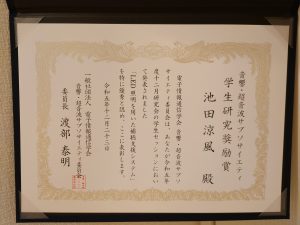 音響・超音波サブソサイエティ
学生研究奨励賞
池田涼風 殿
電子情報通信学会 音響・超音波サブソ
サイエティ委員会は あなたが令和五年
度十二月研究会の学生セッションにおい
て発表されました
「LED照明を用いた補聴支援システム」
を特に優秀と認め、ここに表彰します。
令和五年十二月二十三日
一般社団法人 電子情報通信学会
音響・超音波サブソサイエティ委員会
委員長 渡部泰明